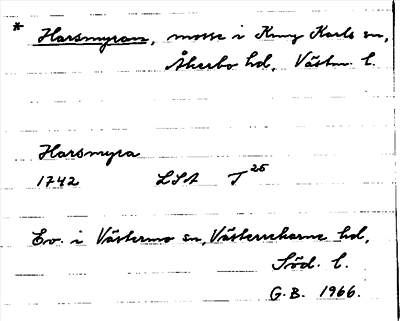 * Harsmyran, mosse i Kung Karls sn,
Åkerbo hd, Västm. l.
Harsmyra
1742 LSA T 25
Ev. i Västermo sn, Västerrekarne hd,
Söd. l.
G.B. 1966.